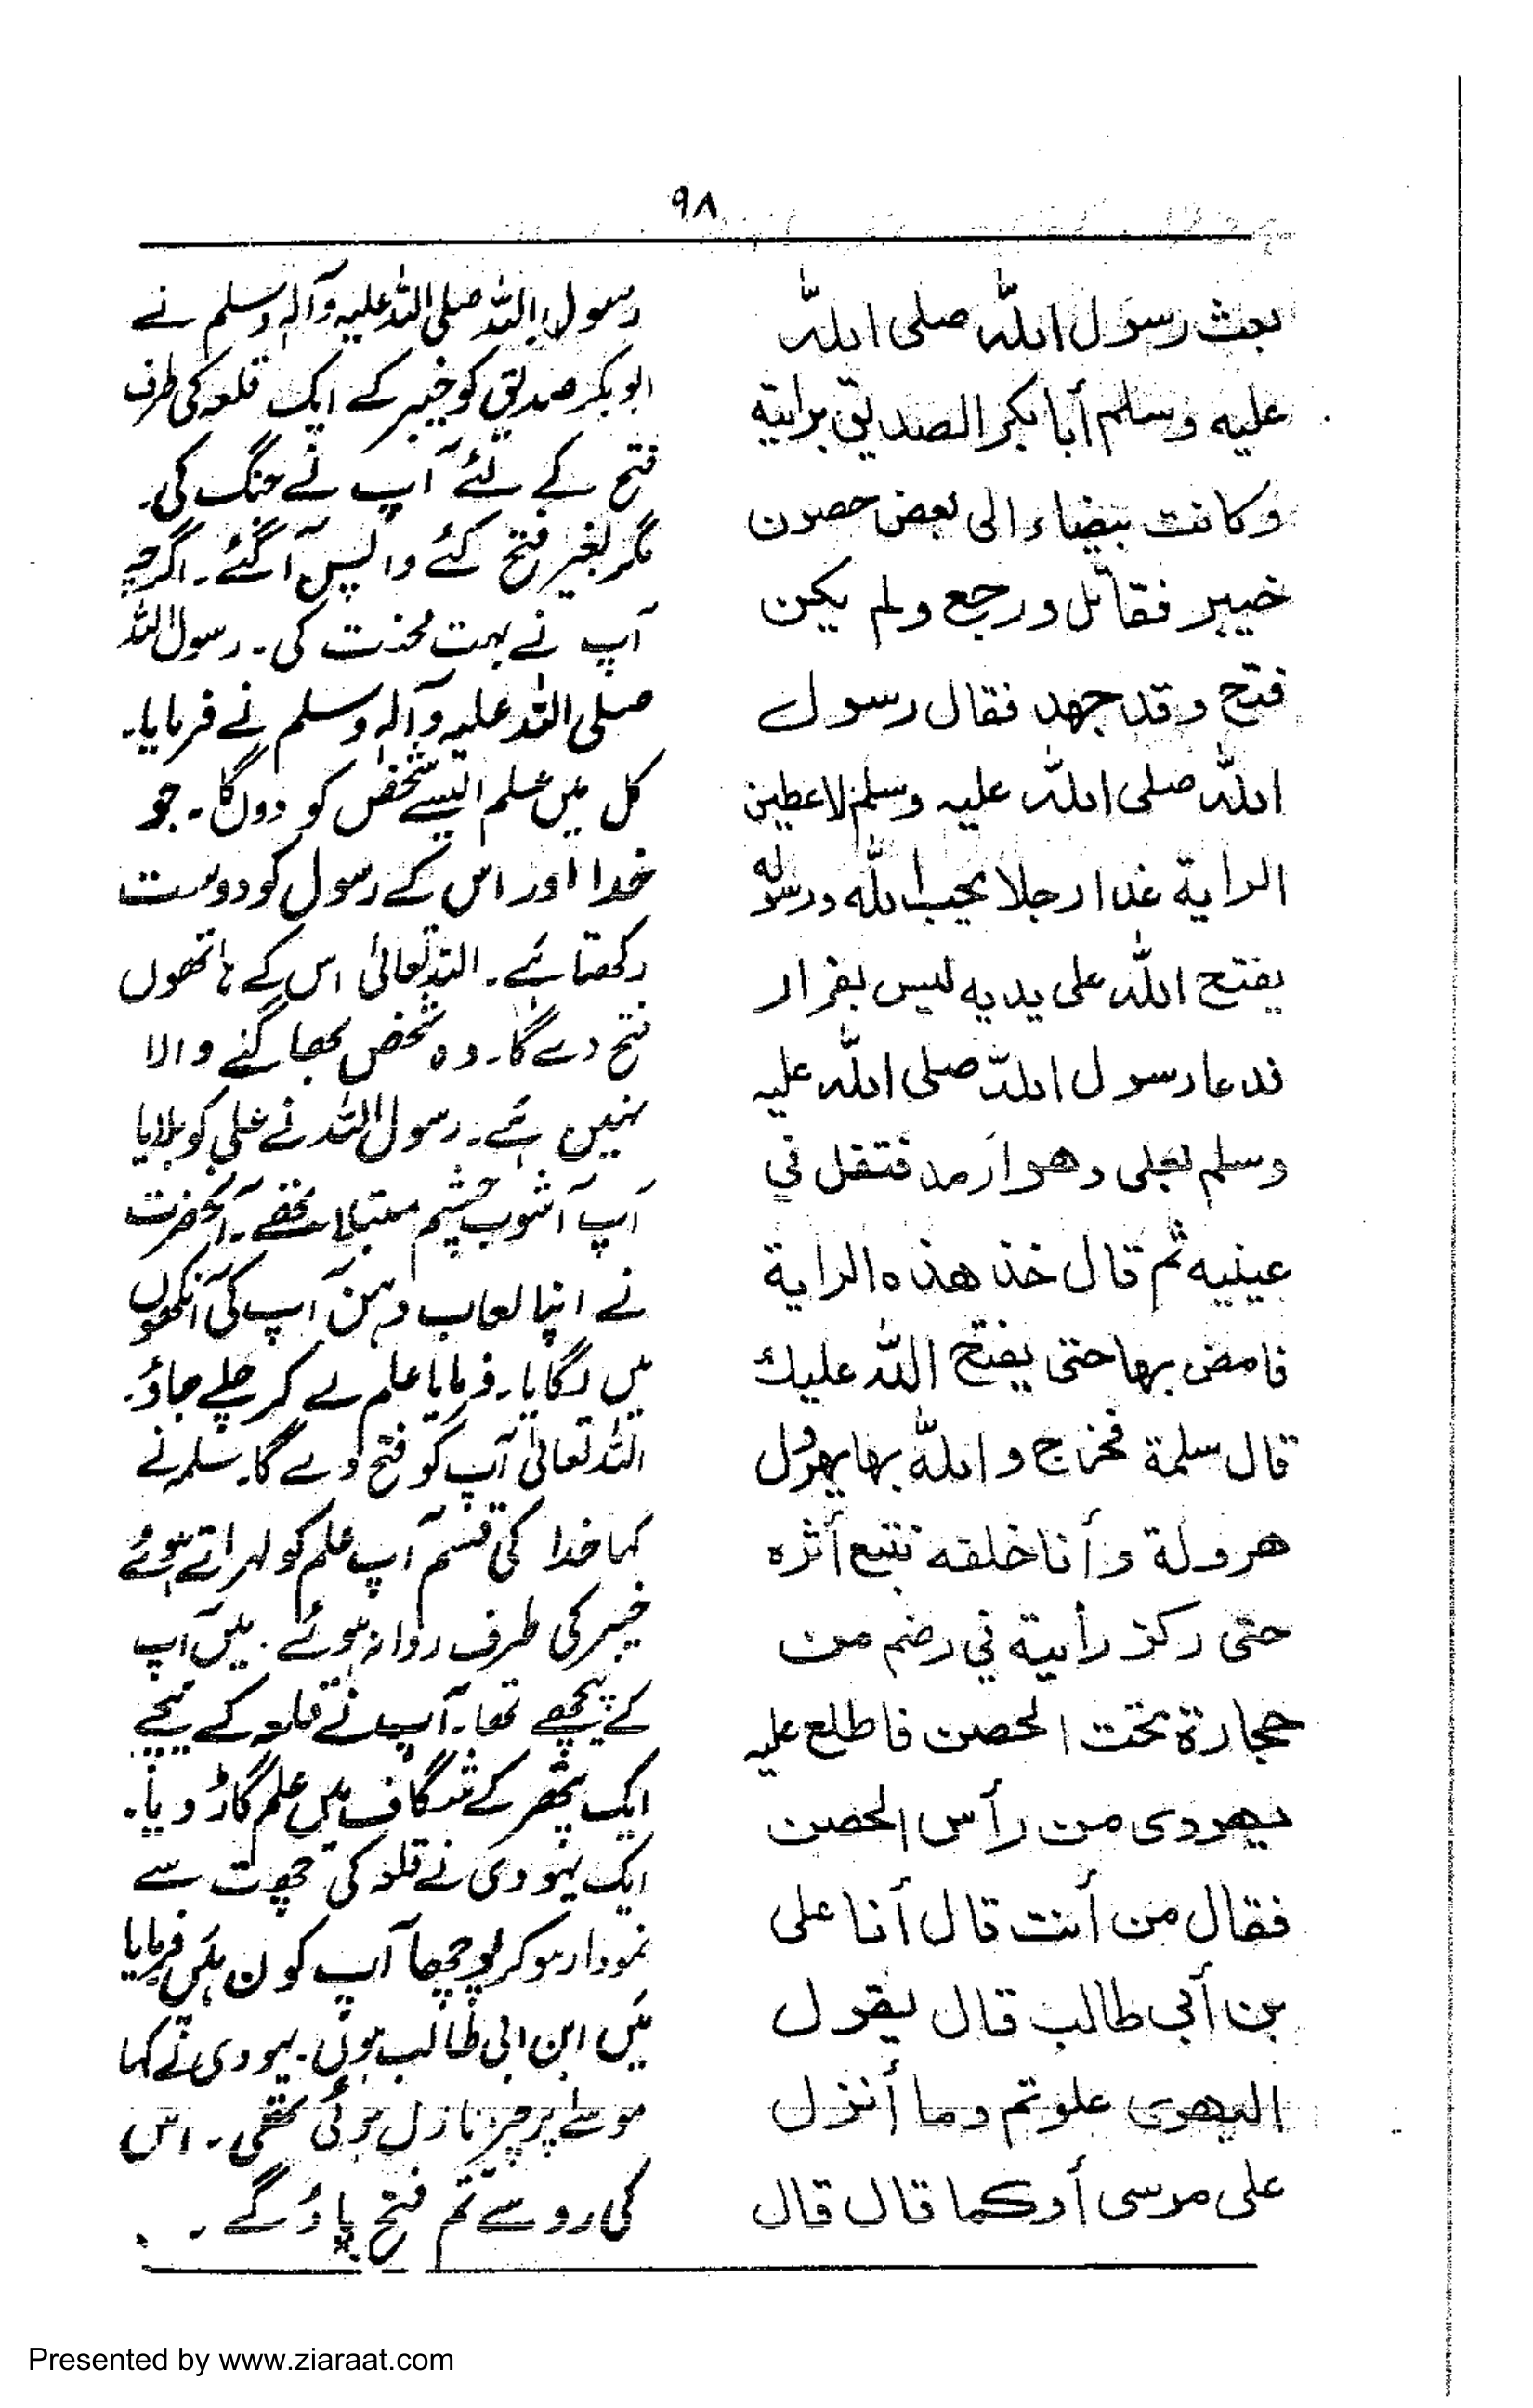 ۹۸
بعث رسول الله صلى الله
عليه وسلم أبا بكر الصديق براية
وكانت بيضاء الى بعض حصون
خيبر فقاتل ورجع ولم يكن
فتح وقد جهد فقال رسول
الله صلى الله عليه وسلم لاعطين
الراية غدا رجلا يحب الله ورسوله
يفتح الله على يديه ليس بفرار
فدعا رسول الله صلى الله عليه
وسلم لعلى وهو أرمد فتفل في
عينيه ثم قال خذ هذه الراية
فامض بها حتى يفتح الله عليك
قال سلمة فخرج و الله بها يهرول
هرولة و أنا خلفه نتبع أثره
حتى ركز رأيته في رضم من
حجارة تحت الحصن فاطلع عليه
يهودى من رأس الحصن
فقال من أنت قال أنا على
بن أبي طالب قال يقول
اليهوى علوتم وما أنزل
على موسى أوكما قال قال
رسول اللہ صلی اللہ علیہ وآلہ وسلم نے
ابوبکر صدیق کو خیبر کے ایک قلعہ کی طرف
فتح کے لئے آپ نے جنگ کی۔
مگر بغیر فتح کئے واپس آگئے۔ اگرچہ
آپ نے بہت محنت کی۔ رسول اللہ
صلی اللہ علیہ وآلہ وسلم نے فرمایا۔
کل میں علم ایسے شخص کو دوں گا۔ جو
خدا اور اس کے رسول کو دوست
رکھتا ہے۔ اللہ تعالیٰ اس کے ہاتھوں
فتح دے گا۔ وہ شخص بھاگنے والا
نہیں ہے۔ رسول اللہ نے علی کو بلایا
آپ آشوب چشم مبتلا تھے۔ آنحضرت
نے اپنا لعاب دہن آپ کی آنکھوں
میں لگایا۔ فرمایا علم لے کر چلے جاؤ۔
اللہ تعالیٰ آپ کو فتح دے گا۔ سلمہ نے
کہا خدا کی قسم آپ علم کو لہراتے ہوئے
خیبر کی طرف روانہ ہوئے۔ میں آپ
کے پیچھے تھا۔ آپ نے قلعہ کے نیچے
ایک پتھر کے شگاف میں علم گاڑ دیا۔
ایک یہودی نے قلعہ کی چھت سے
نمودار ہو کر پوچھا آپ کون ہیں فرمایا
میں ابن ابی طالب ہوں۔ یہودی نے کہا
موسےٰ پر جو چیز نازل ہوئی تھی۔ اس
کی رو سے تم فتح پاؤ گے۔
Presented by www.ziaraat.com